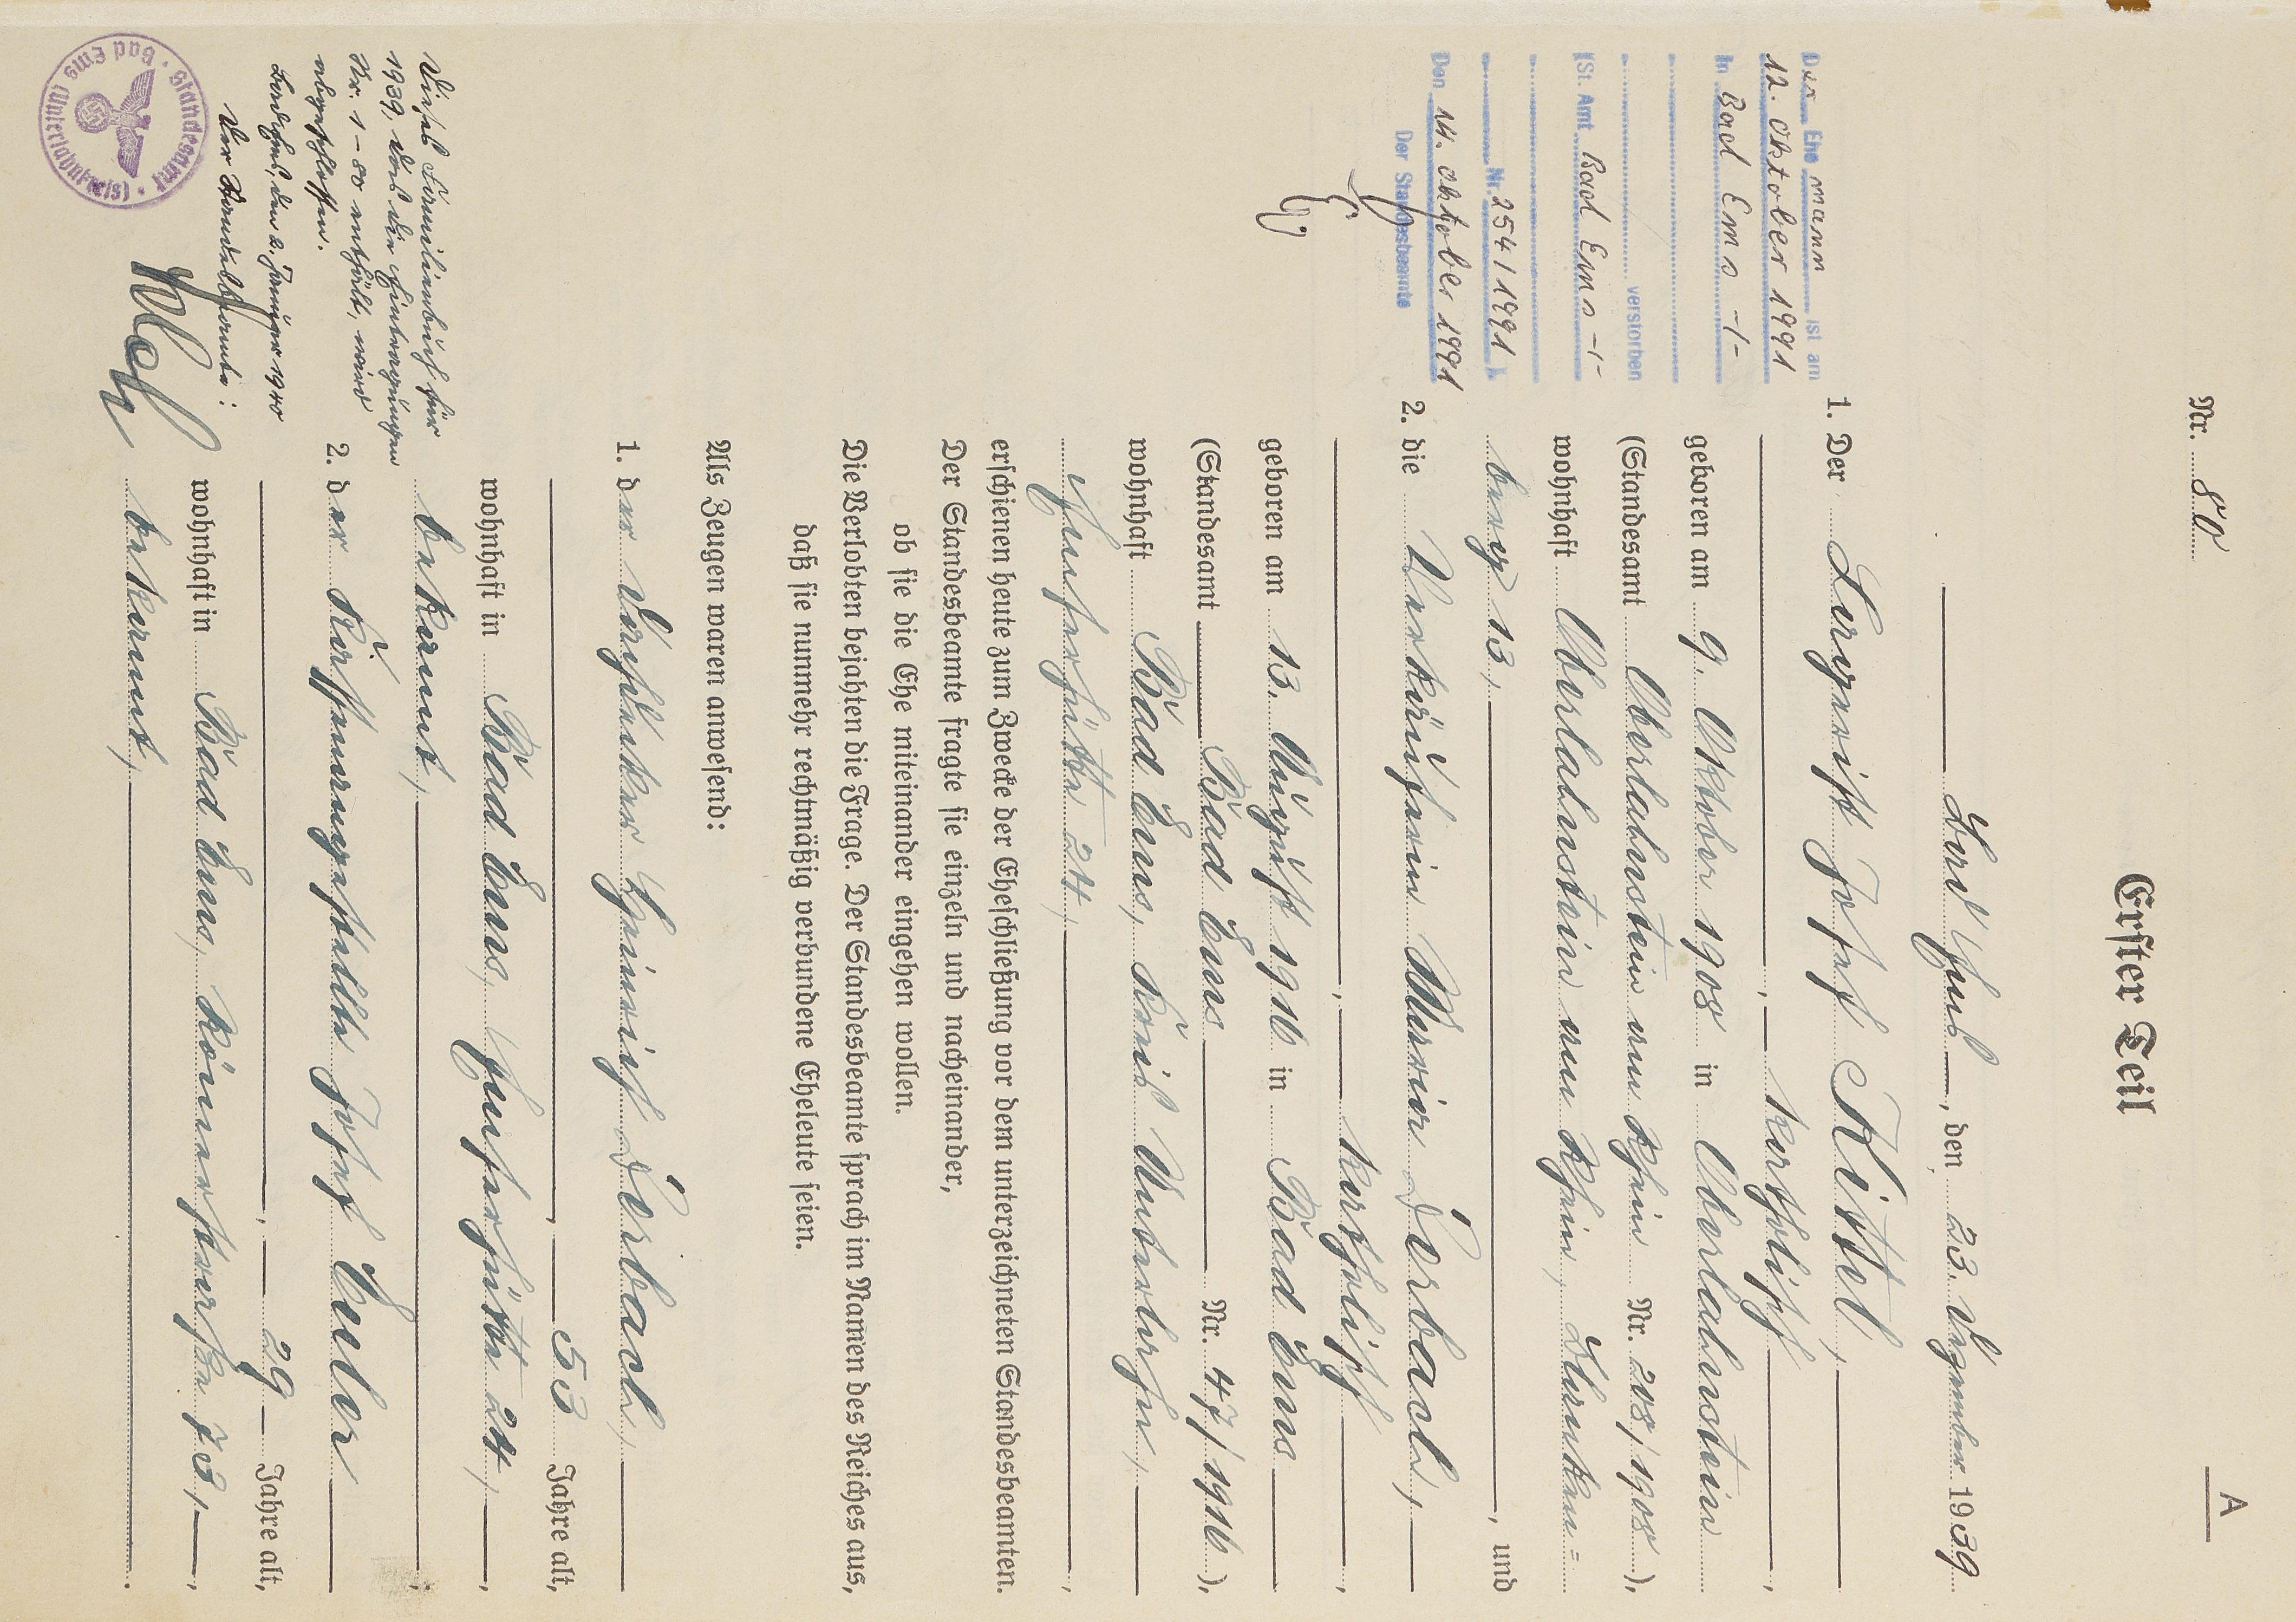 A
Nr. 80
Erster Teil
Bad Ems, den 23. Dezember 1939
1. Der Josef Kittel,
katholisch,
geboren am 9. Oktober 1908 in Oberlahnstein
(Standesamt Oberlahnstein am Rhein Nr. 208/1908),
wohnhaft Oberlahnstein am Rhein,
berg 13, und
2. die Verkäuferin Maria Dorbach,
katholisch,
geboren am 13. August 1916 in Bad Ems
(Standesamt Bad Ems Nr. 47/1916),
wohnhaft Bad Ems,
24,
erschienen heute zum Zwecke der Eheschließung vor dem unterzeichneten Standesbeamten.
Der Standesbeamte fragte sie einzeln und nacheinander,
ob sie die Ehe miteinander eingehen wollen.
Die Verlobten bejahten die Frage. Der Standesbeamte sprach im Namen des Reiches aus,
daß sie nunmehr rechtmäßig verbundene Eheleute seien.
Als Zeugen waren anwesend:
1. der Heinrich Dorbach,
53 Jahre alt,
wohnhaft in Bad Ems, 24,
bekannt,
2. der Josef Euler
29 Jahre alt,
wohnhaft in Bad Ems, Römerstraße 73,
bekannt,
Der Ehemann ist am
12. Oktober 1991
in Bad Ems -/-
verstorben
(St. Amt Bad Ems -/-
Nr. 254/1991)
Den 14. Oktober 1991
Der Standesbeamte
Dieses Familienbuch für
1939, das die Eintragungen
Nr. 1-80 enthält, wird
abgeschlossen.
Bad Ems, den 2. Januar 1940
Der Standesbeamte:
Standesamt · Bad Ems (Unterlahnkreis) ·